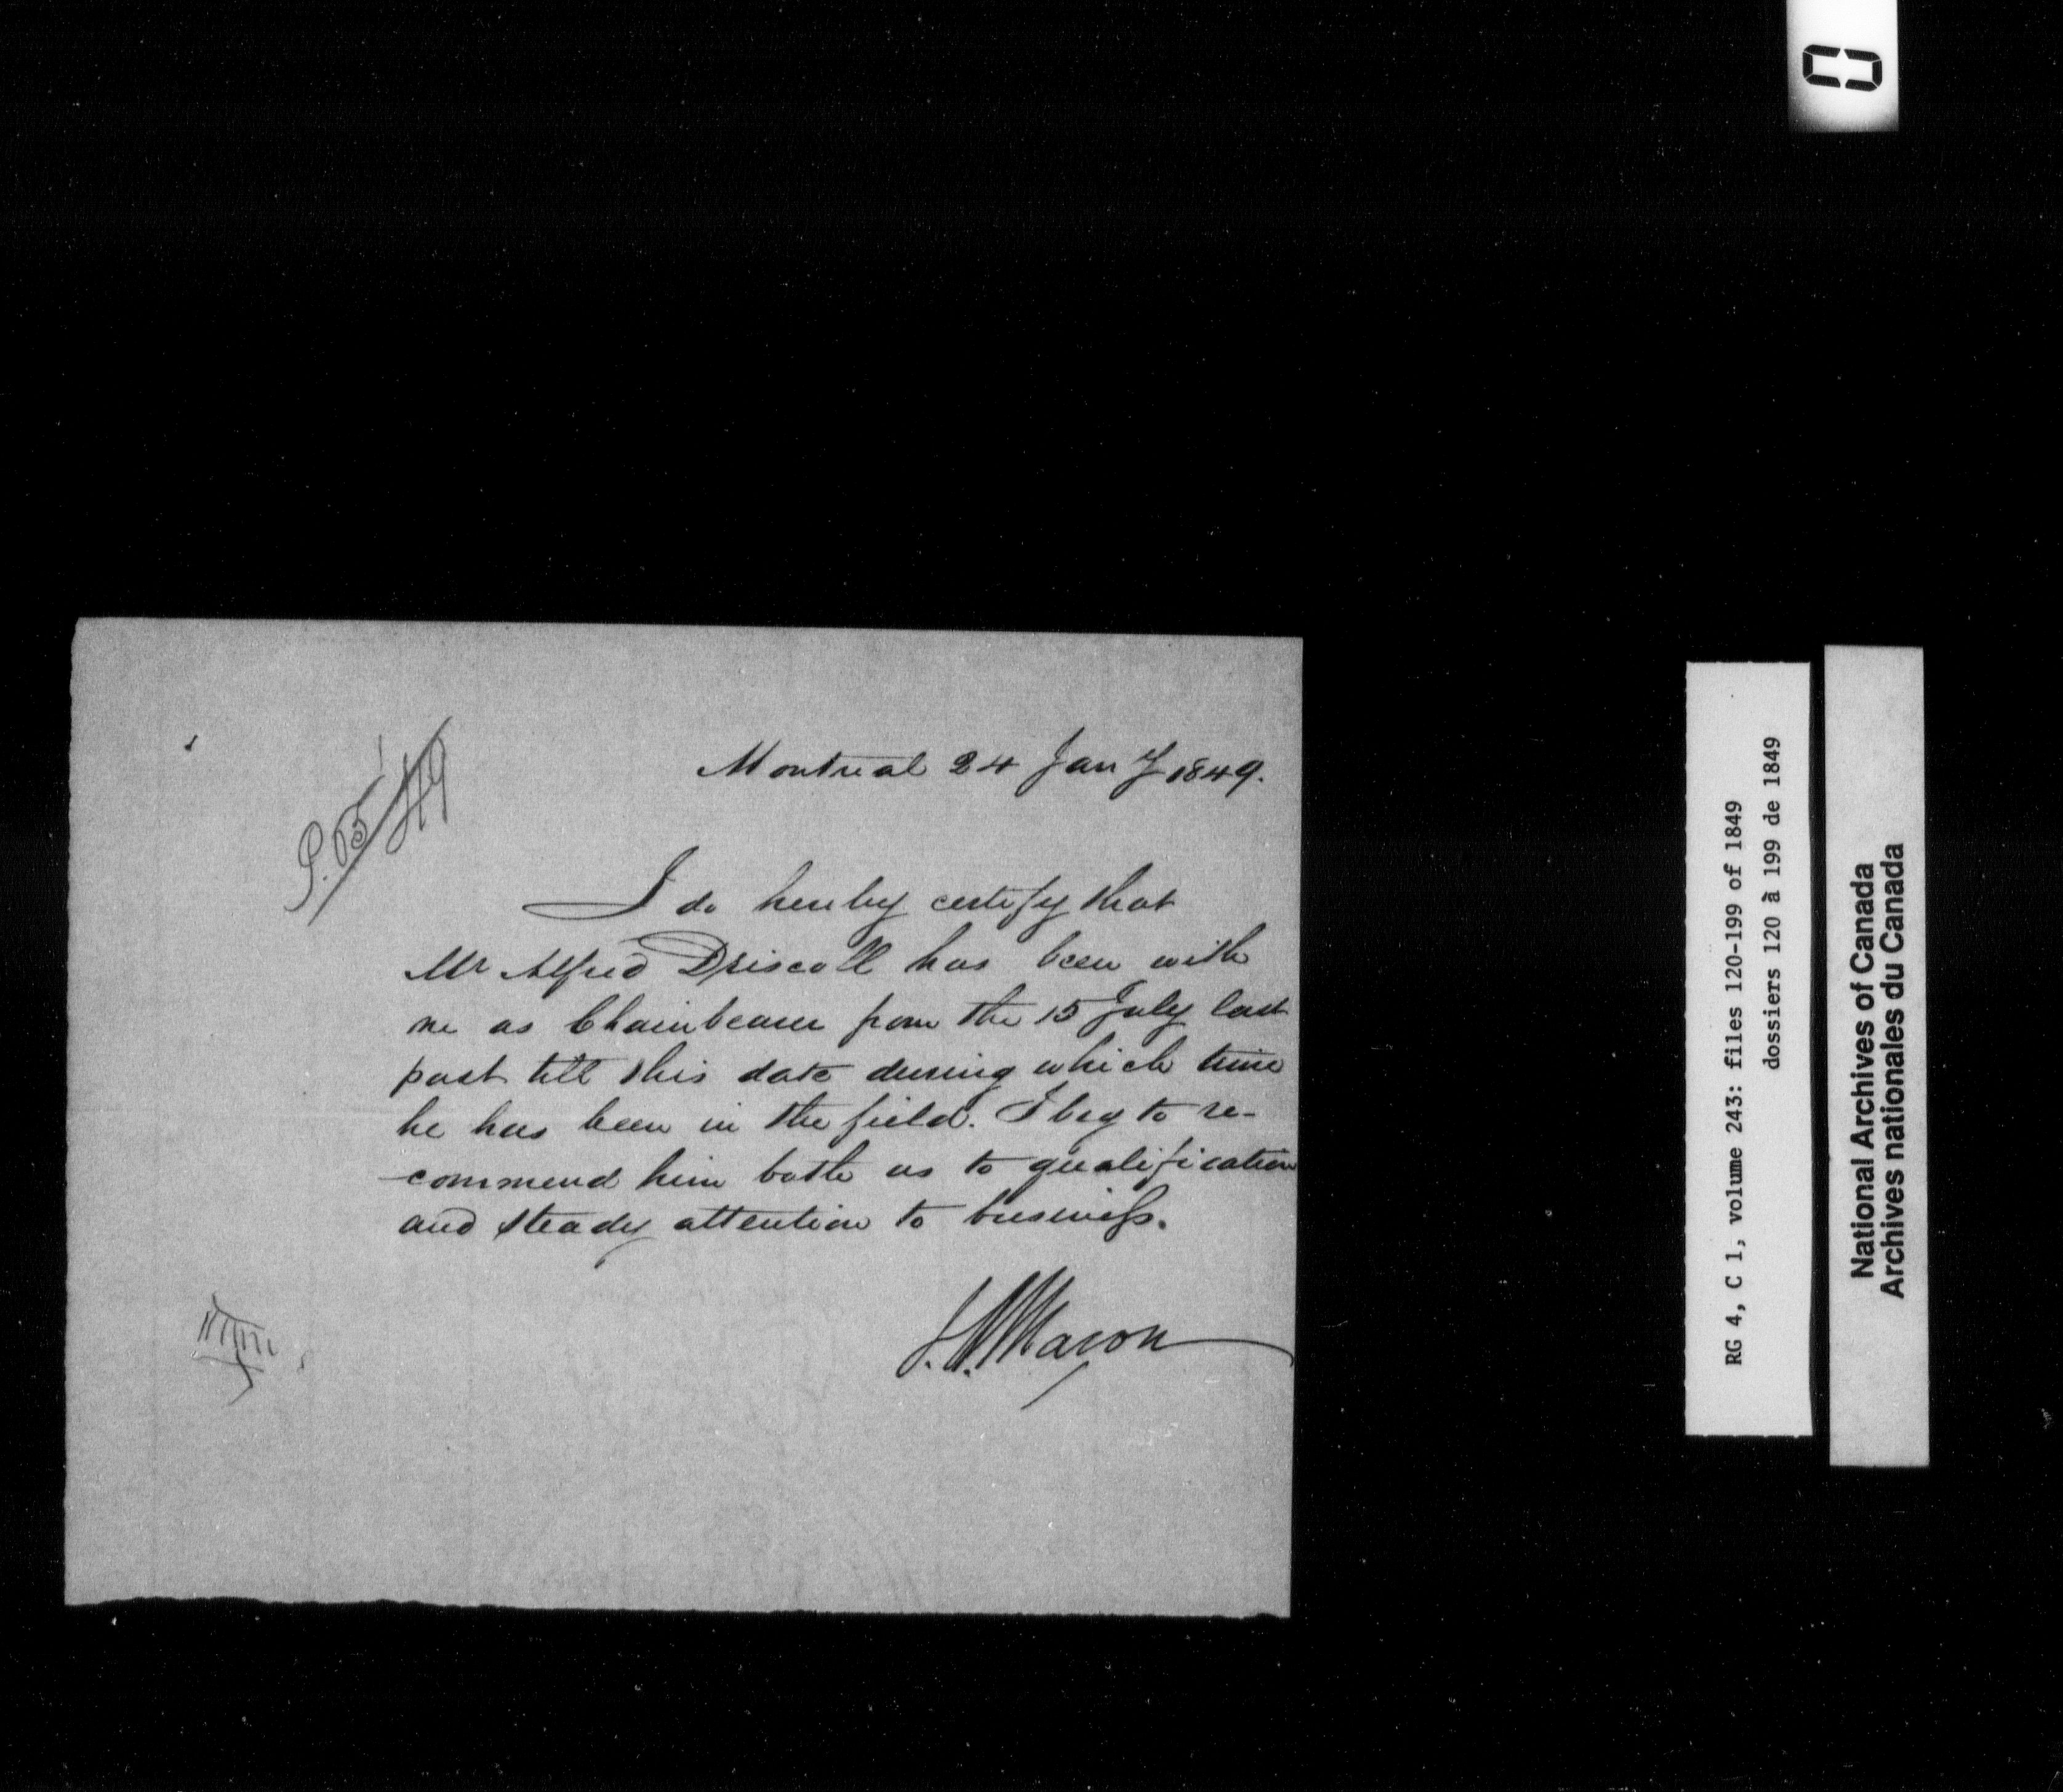 Montreal 24 Jany 1849.
I do hereby certify that
Mr Alfred Driscoll has been with
me as Chainbearer from the 15 July last
past till this date during which time
he has been in the field. I beg to re-
commend him both as to qualification
and steady attention to business.
Mason
RG 4, C 1, volume 243: files 120-199 of 1849
dossiers 120 à 199 de 1849
National Archives of Canada
Archives nationales du Canada